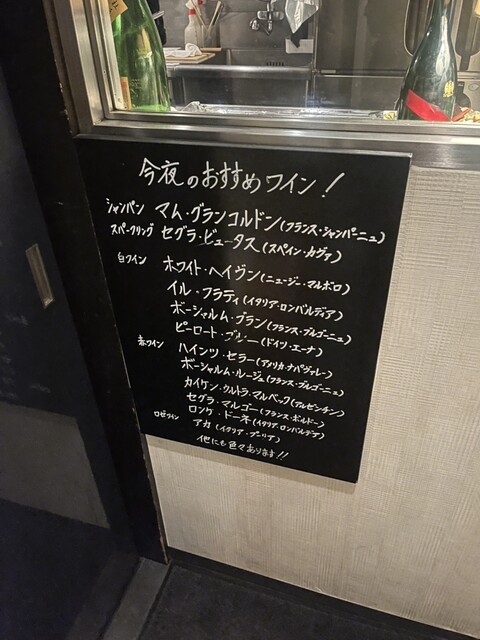 今夜のおすすめワイン!
シャンパン マム・グランコルドン(フランス・シャンパーニュ)
スパークリング セグラ・ビュータス(スペイン・カヴァ)
白ワイン ホワイト・ヘイヴン(ニュージー・マルボロ)
イル・フラティ(イタリア・ロンバルディア)
ボーシャルム・ブラン(フランス・ブルゴーニュ)
ピーロート・ブルー(ドイツ・エーナ)
赤ワイン ハインツ・セラー(アメリカ・ナパヴァレー)
ボーシャルム・ルージュ(フランス・ブルゴーニュ)
カイケン・ウルトラ・マルベック(アルゼンチン)
セグラ・マルゴー(フランス・ボルドー)
ロンケ・ドーネ(イタリア・ロンバルデア)
ロゼワイン アカ(イタリア・プーリア)
他にも色々あります!!